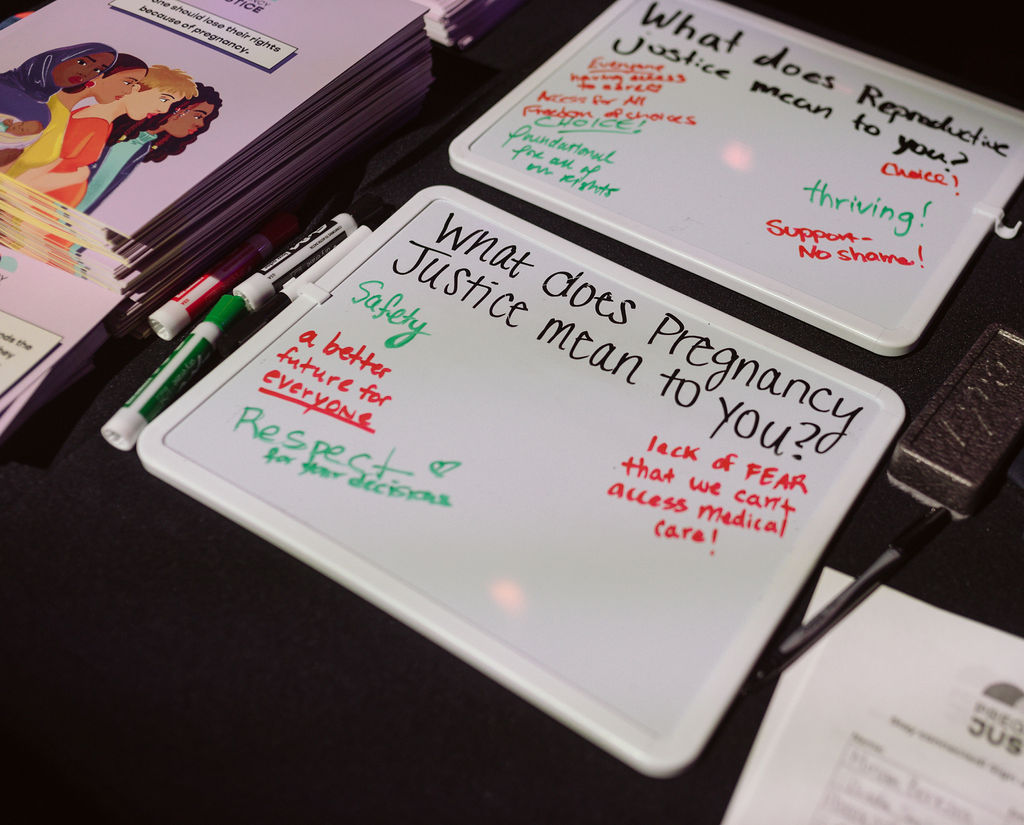 JUSTICE
one should lose their rights
because of pregnancy.
What does Reproductive
Justice mean to you?
Everyone
having access
to
Access for All
Freedom of choices
CHOICE!
foundational
for all of
our rights
Choice!
thriving!
Support-
No shame!
What does Pregnancy
Justice mean to you?
Safety
a better
future for
everyone
Respect
for your decisions
lack of FEAR
that we can't
access medical
care!
nds the
they
PREG
JUS
Stay connected! Sign
Name